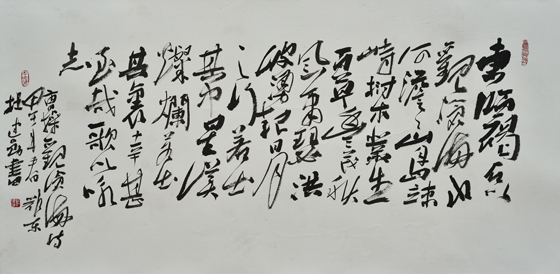 東臨碣石以
觀滄海水
何澹々山島竦
峙樹木叢生
百草豐茂秋
風蕭瑟洪
波勇起日月
之行若出
其中星漢
燦爛若出
其裏幸甚
至哉歌以詠
志
曹操觀滄海詩
甲午年春月鄂东
建書